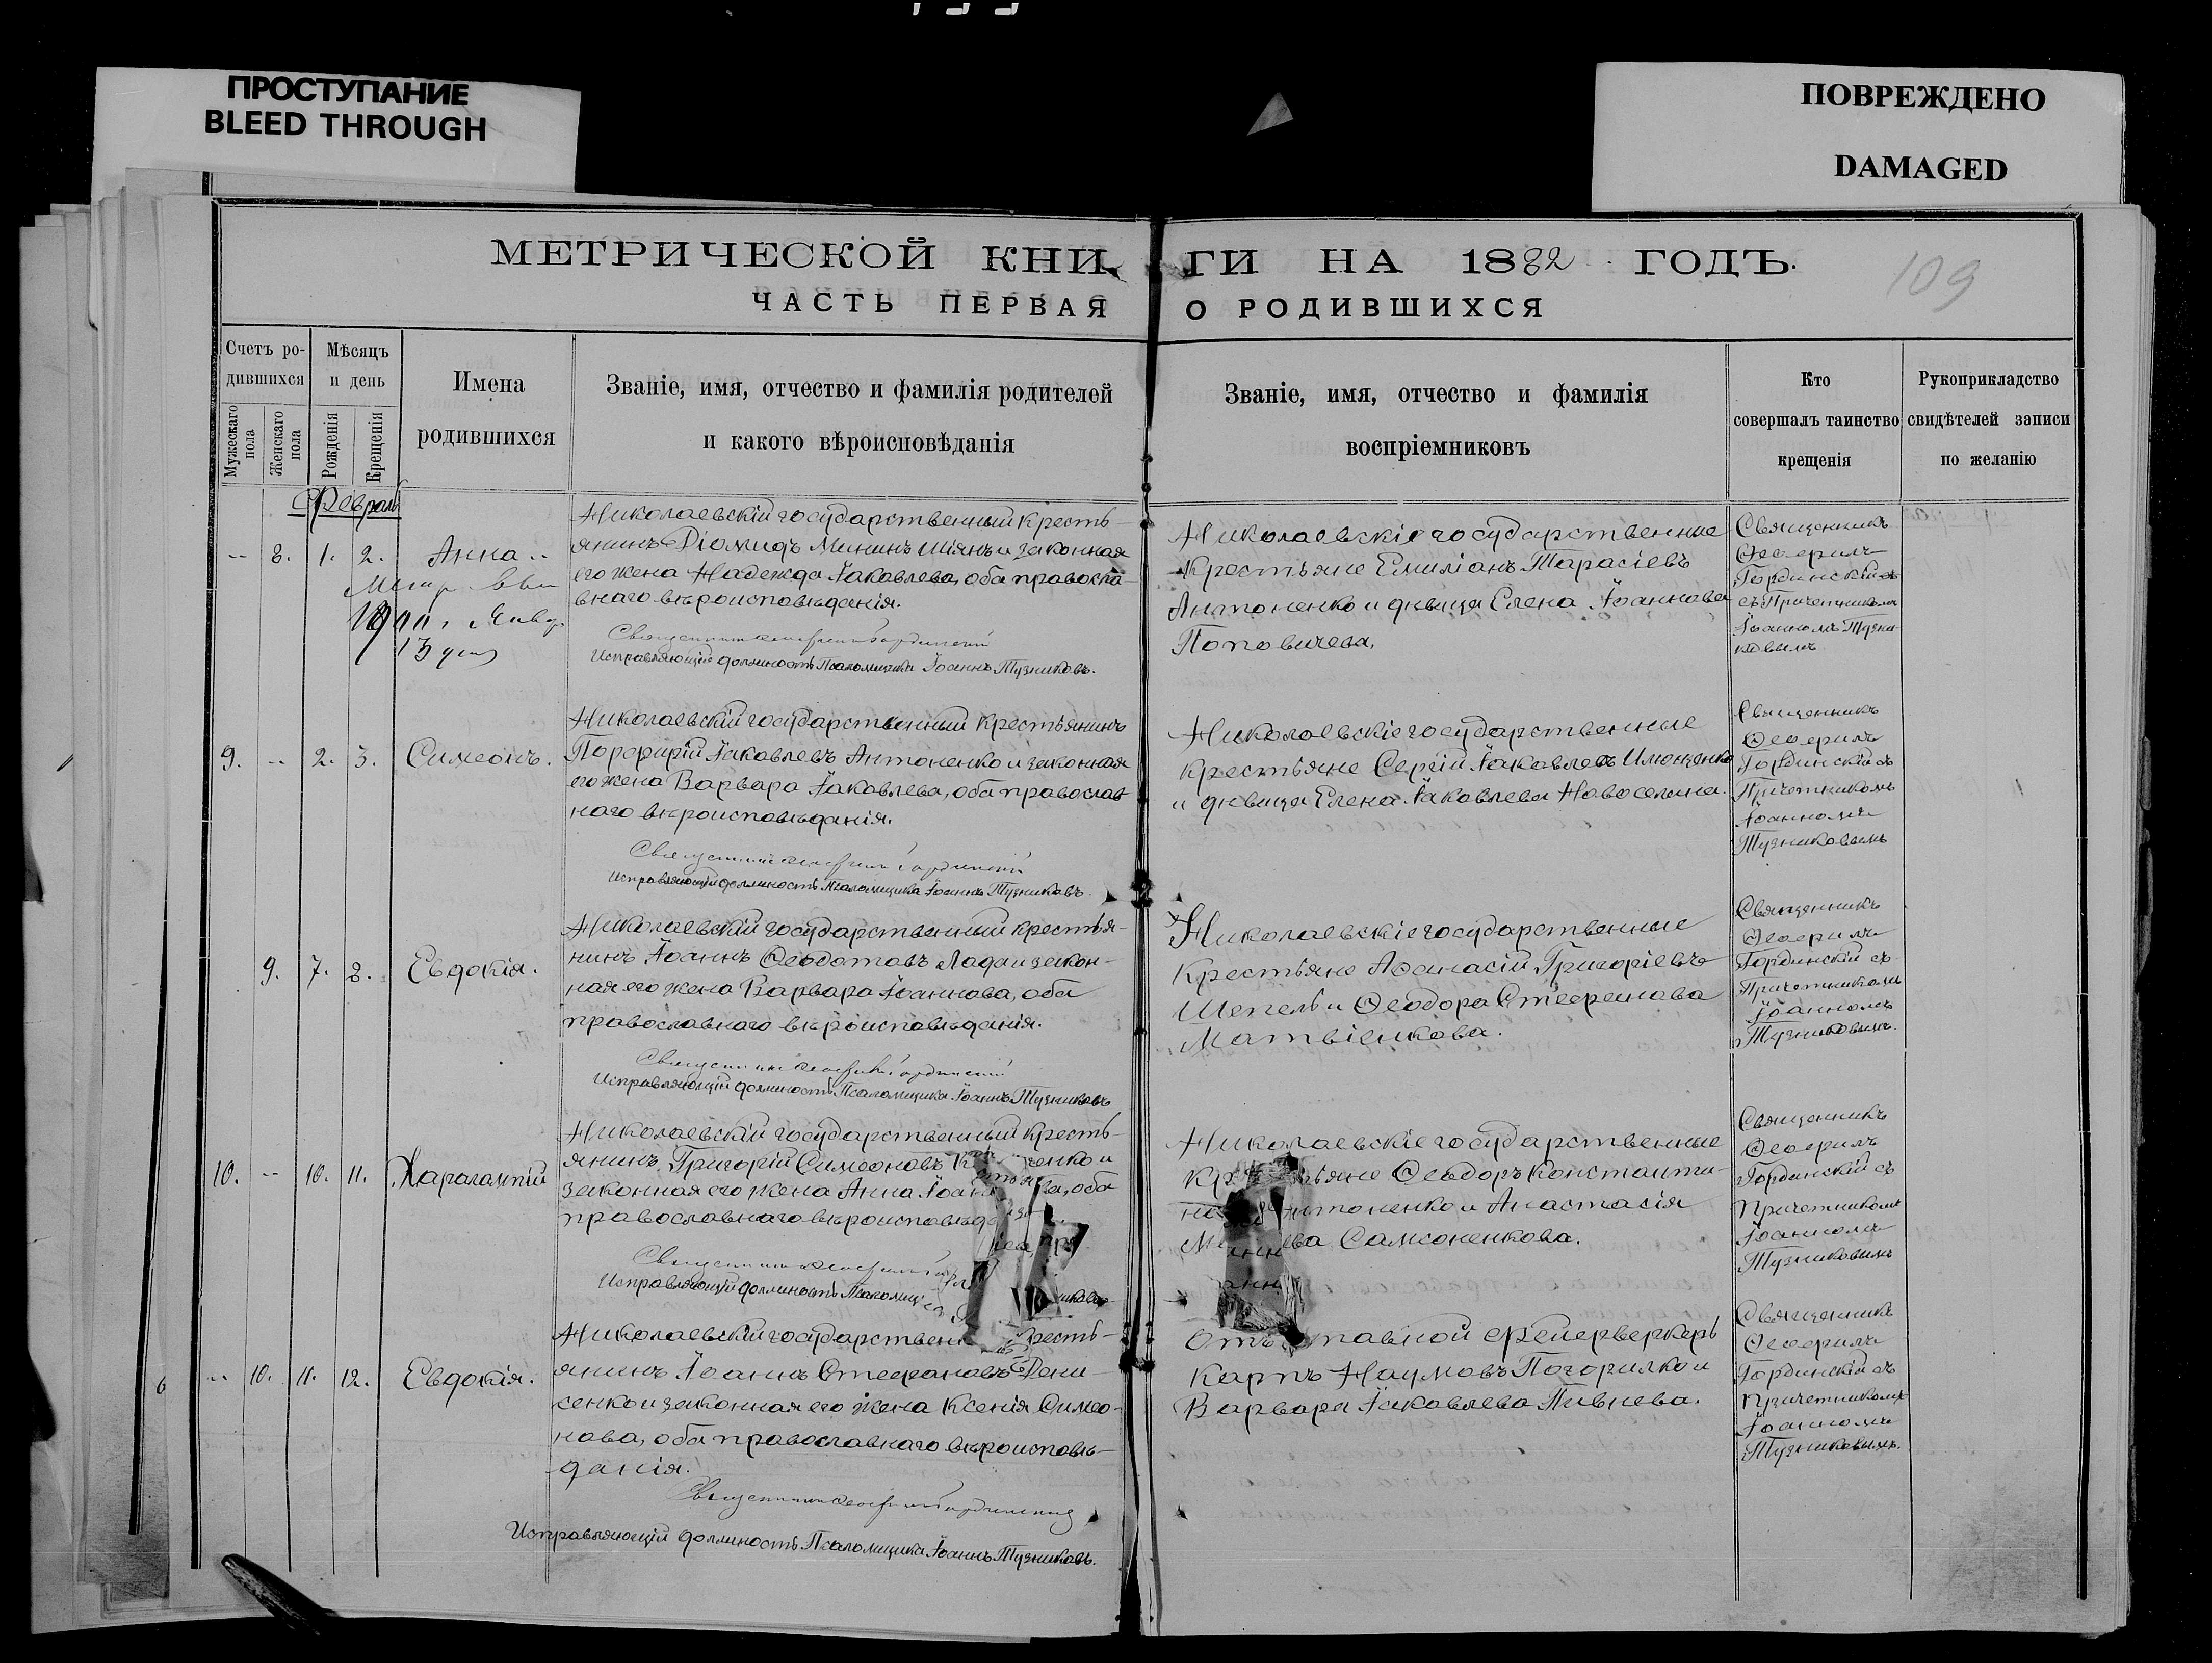 ПРОСТУПАНИЕ
BLEED THROUGH
ПОВРЕЖДЕНО
DAMAGED
МЕТРИЧЕСКОЙ КНИ
ГИ НА 1882 ГОДЪ.
109
ЧАСТЬ ПЕРВАЯ
О РОДИВШИХСЯ
Счетъ ро-
дившихся
Мужескаго
пола
Женскаго
пола
Мѣсяцъ
и день
Рожденія
Крещенія
Имена
родившихся
Званіе, имя, отчество и фамилія родителей
и какого вѣроисповѣданія
Званіе, имя, отчество и фамилія
воспріемниковъ
Кто
совершалъ таинство
крещенія
Рукоприкладство
свидѣтелей записи
по желанію
Февраль
-- 8. 1. 2. Анна
1911. Янвр.
13 дня
Николаевскій государственный кресть-
янинъ Діомидъ Мининъ Шіянъ и законная
его жена Надежда Іаковлева, оба правосла-
внаго вѣроисповѣданія.
Исправляющій должность Псаломщика Іоаннъ Тузниковъ.
Николаевскіе государственные
крестьяне Емиліанъ Тарасіевъ
Антоненко и дѣвица Елена Іоаннова
Поповичева,
Священникъ
Ѳеофилъ
Гординскій съ
съ Причетникомъ
Іоанномъ Тузни-
ковымъ
9. -- 2. 3. Симеонъ.
Николаевскій государственный крестьянинъ
Порфирій Іаковлевъ Антоненко и законная
его жена Варвара Іаковлева, оба православ
наго вѣроисповѣданія.
Исправляющій должность Псаломщика Іоаннъ Тузниковъ.
Николаевскіе государственные
крестьяне Сергій Іаковлевъ Илющенко
и дѣвица Елена Іаковлева Новоселина.
Священникъ
Ѳеофилъ
Гординскій съ
Причетникомъ
Іоанномъ
Тузниковымъ
9. 7. 8. Евдокія.
Николаевскій государственный крестья-
нинъ Іоаннъ Ѳеодотовъ Лада и закон-
ная его жена Варвара Іоаннова, оба
православнаго вѣроисповѣданія.
Исправляющій должность Псаломщика Іоаннъ Тузниковъ
Николаевскіе государственные
Крестьяне Аѳанасій Григоріевъ
Шепель и Ѳеодора Стефанова
Матвіенкова.
Священникъ
Ѳеофилъ
Гординскій съ
Причетникомъ
Іоанномъ
Тузниковымъ.
10. -- 10. 11. Харалампій
Николаевскій государственный кресть-
янинъ Григорій Симеоновъ
законная его жена Анна оба
православнаго
Исправляющій должность
Николаевскіе государственные
Ѳеодоръ Константи-
и Анастасія
Самсоненкова.
Священникъ
Ѳеофилъ
Гординскій съ
Причетникомъ
Іоанномъ
Тузниковымъ
6
-- 10. 11. 12. Евдокія.
Николаевскій
янинъ Іоаннъ Стефановъ Дени-
сенко и законная его жена Ксенія Симео-
нова, оба православнаго вѣроисповѣ-
данія.
Исправляющій должность Псаломщика Іоаннъ Тузниковъ.
фейерверкеръ
Карпъ Наумовъ Погорилко и
Варвара Іаковлева Пивнева.
Священникъ
Ѳеофилъ
Гординскій съ
Причетникомъ
Іоанномъ
Тузниковымъ.